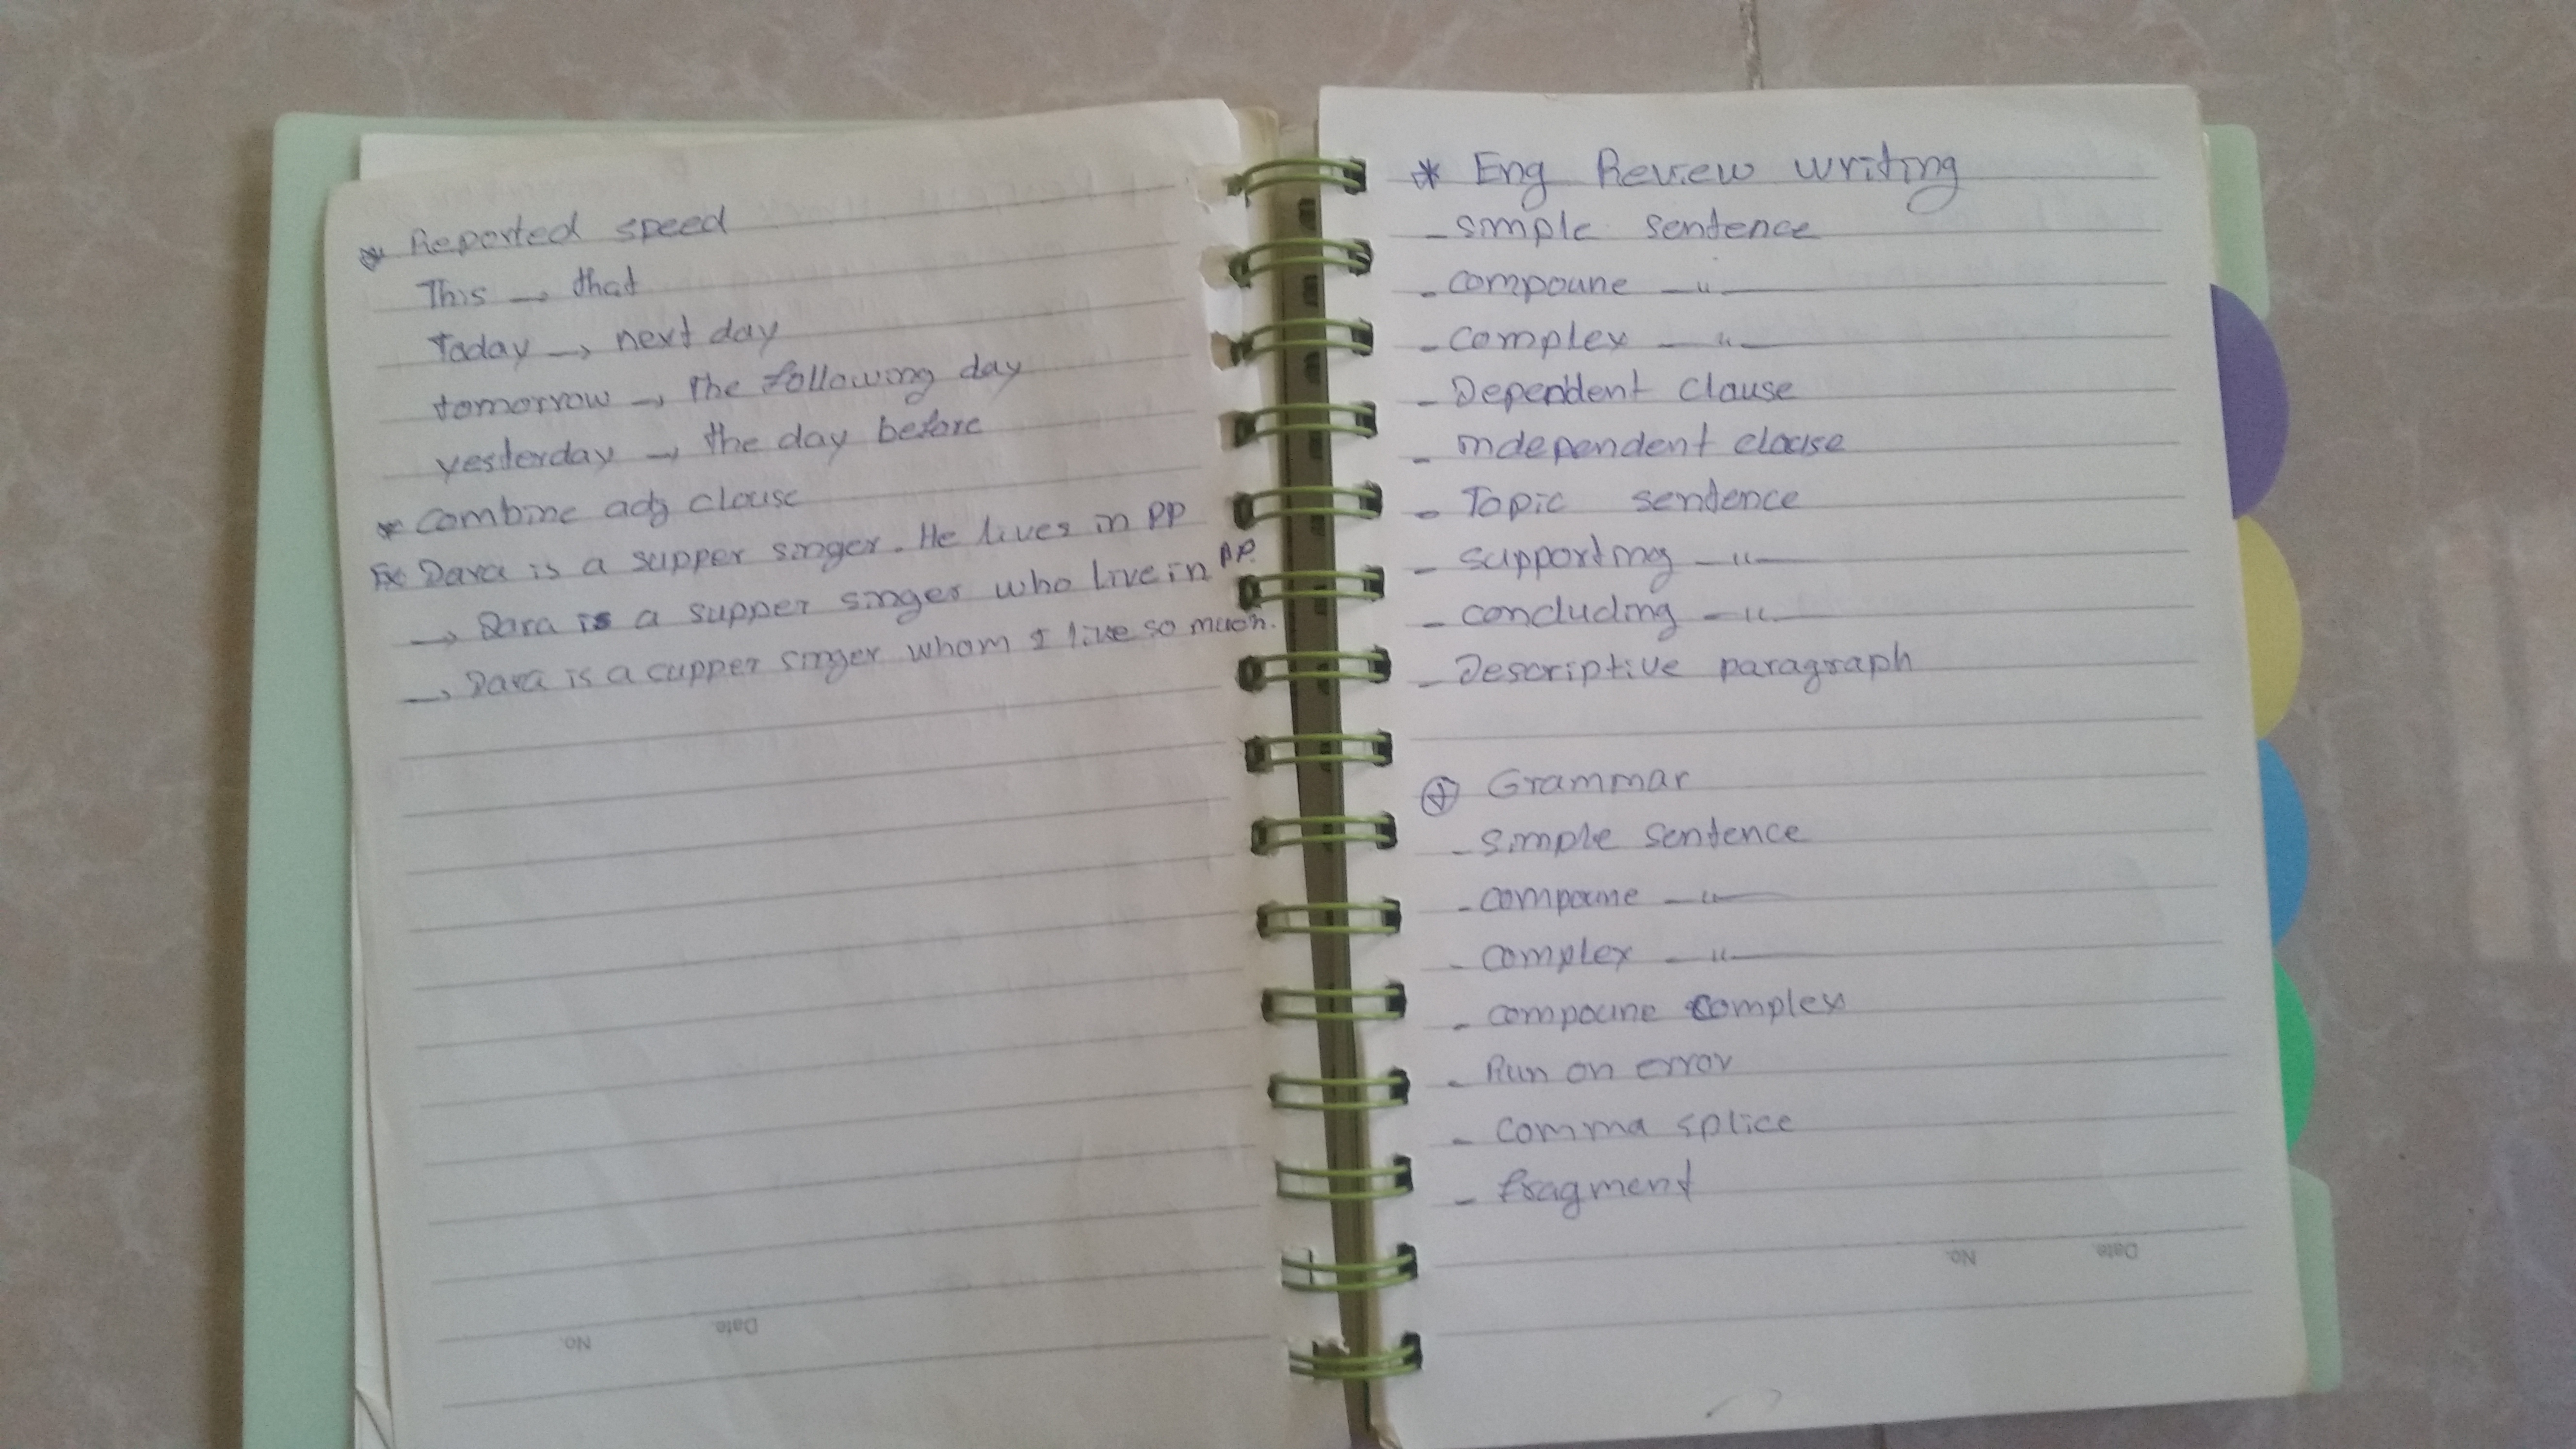 * Reported speed
This → that
Today → next day
tomorrow → the following day
yesterday → the day before
* Combine adj clouse
Ex Dara is a supper singer. He lives in PP
→ Dara is a supper singer who live in PP.
→ Dara is a cupper singer whom I like so much.
No. Date.
* Eng Review writing
- simple sentence
- compoune — " —
- complex — " —
- Dependent clause
- independent clause
- Topic sentence
- supporting — " —
- concluding — " —
- Descriptive paragraph
⊕ Grammar
- simple sentence
- compoune — " —
- complex — " —
- compoune complex
- Run on error
- comma splice
- fragment
No. Date.